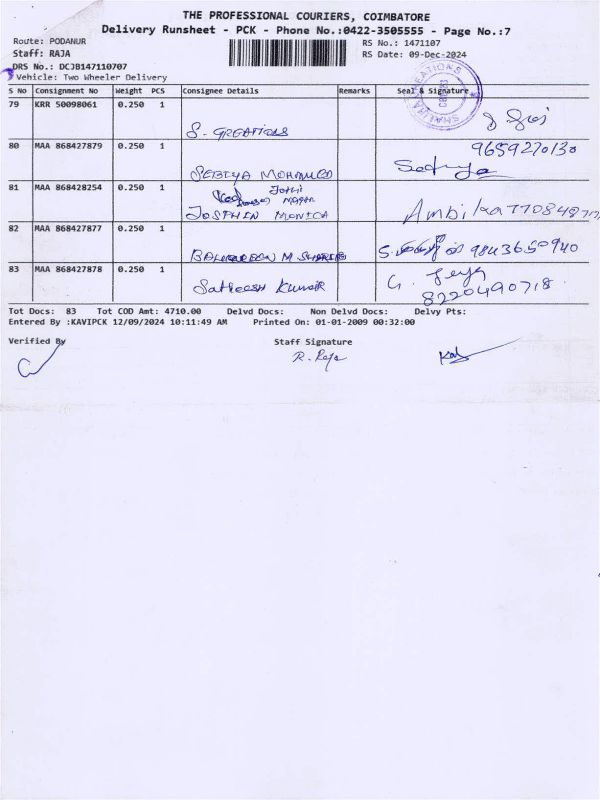 THE PROFESSIONAL COURIERS, COIMBATORE
Delivery Runsheet - PCK - Phone No.:0422-3505555 - Page No.:7
Route: PODANUR RS No.: 1471107
Staff: RAJA RS Date: 09-Dec-2024
DRS No.: DCJB147110707
Vehicle: Two Wheeler Delivery
S No Consignment No Weight PCS Consignee Details Remarks Seal & Signature
79 KRR 50098061 0.250 1
S. CREATIONS
80 MAA 868427879 0.250 1 9659270130
MOHAMMED Sathya
81 MAA 868428254 0.250 1 Jothi
Nagar
JOSPHIN MONICA Ambika
82 MAA 868427877 0.250 1
9843650940
83 MAA 868427878 0.250 1 G. Jeya
Satheesh Kumar 8220490718
Tot Docs: 83 Tot COD Amt: 4710.00 Delvd Docs: Non Delvd Docs: Delvy Pts:
Entered By :KAVIPCK 12/09/2024 10:11:49 AM Printed On: 01-01-2009 00:32:00
Verified By Staff Signature
R. Raja